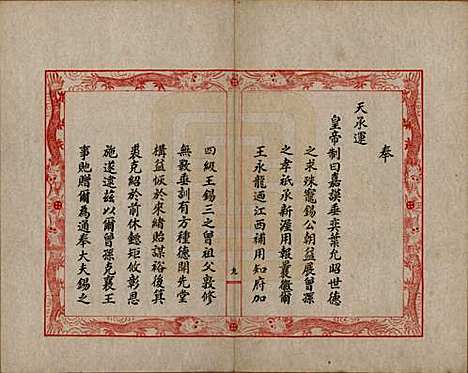 奉
天承運
皇帝制曰嘉謨垂奕葉允昭世德
之求殊寵錫公朝益展曾孫
之孝祇承新渥用報曩徽爾
王永龍過江西補用知府加
九
四級王錫三之曾祖父敦修
無斁垂訓有方種德開先堂
構益恢於來緒貽謀裕後箕
裘克紹於前休轊矩攸彰恩
施遂逮茲以爾曾孫克襄王
事貤贈爾為通奉大夫錫之